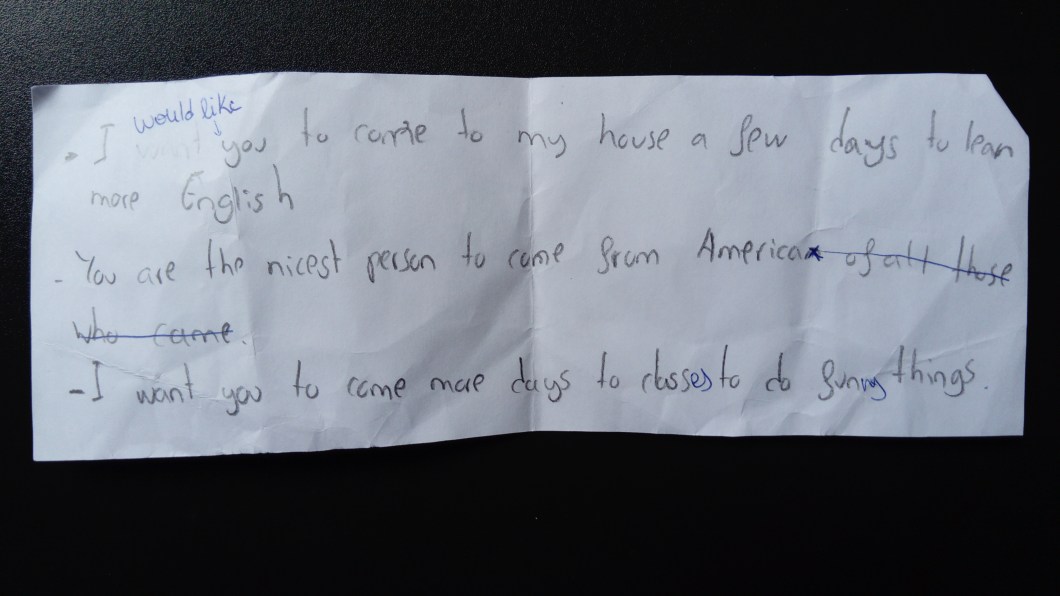 would like
- I want you to come to my house a few days to lean
more English
- You are the nicest person to come from America of all those
who came.
- I want you to come more days to classes to do funny things.